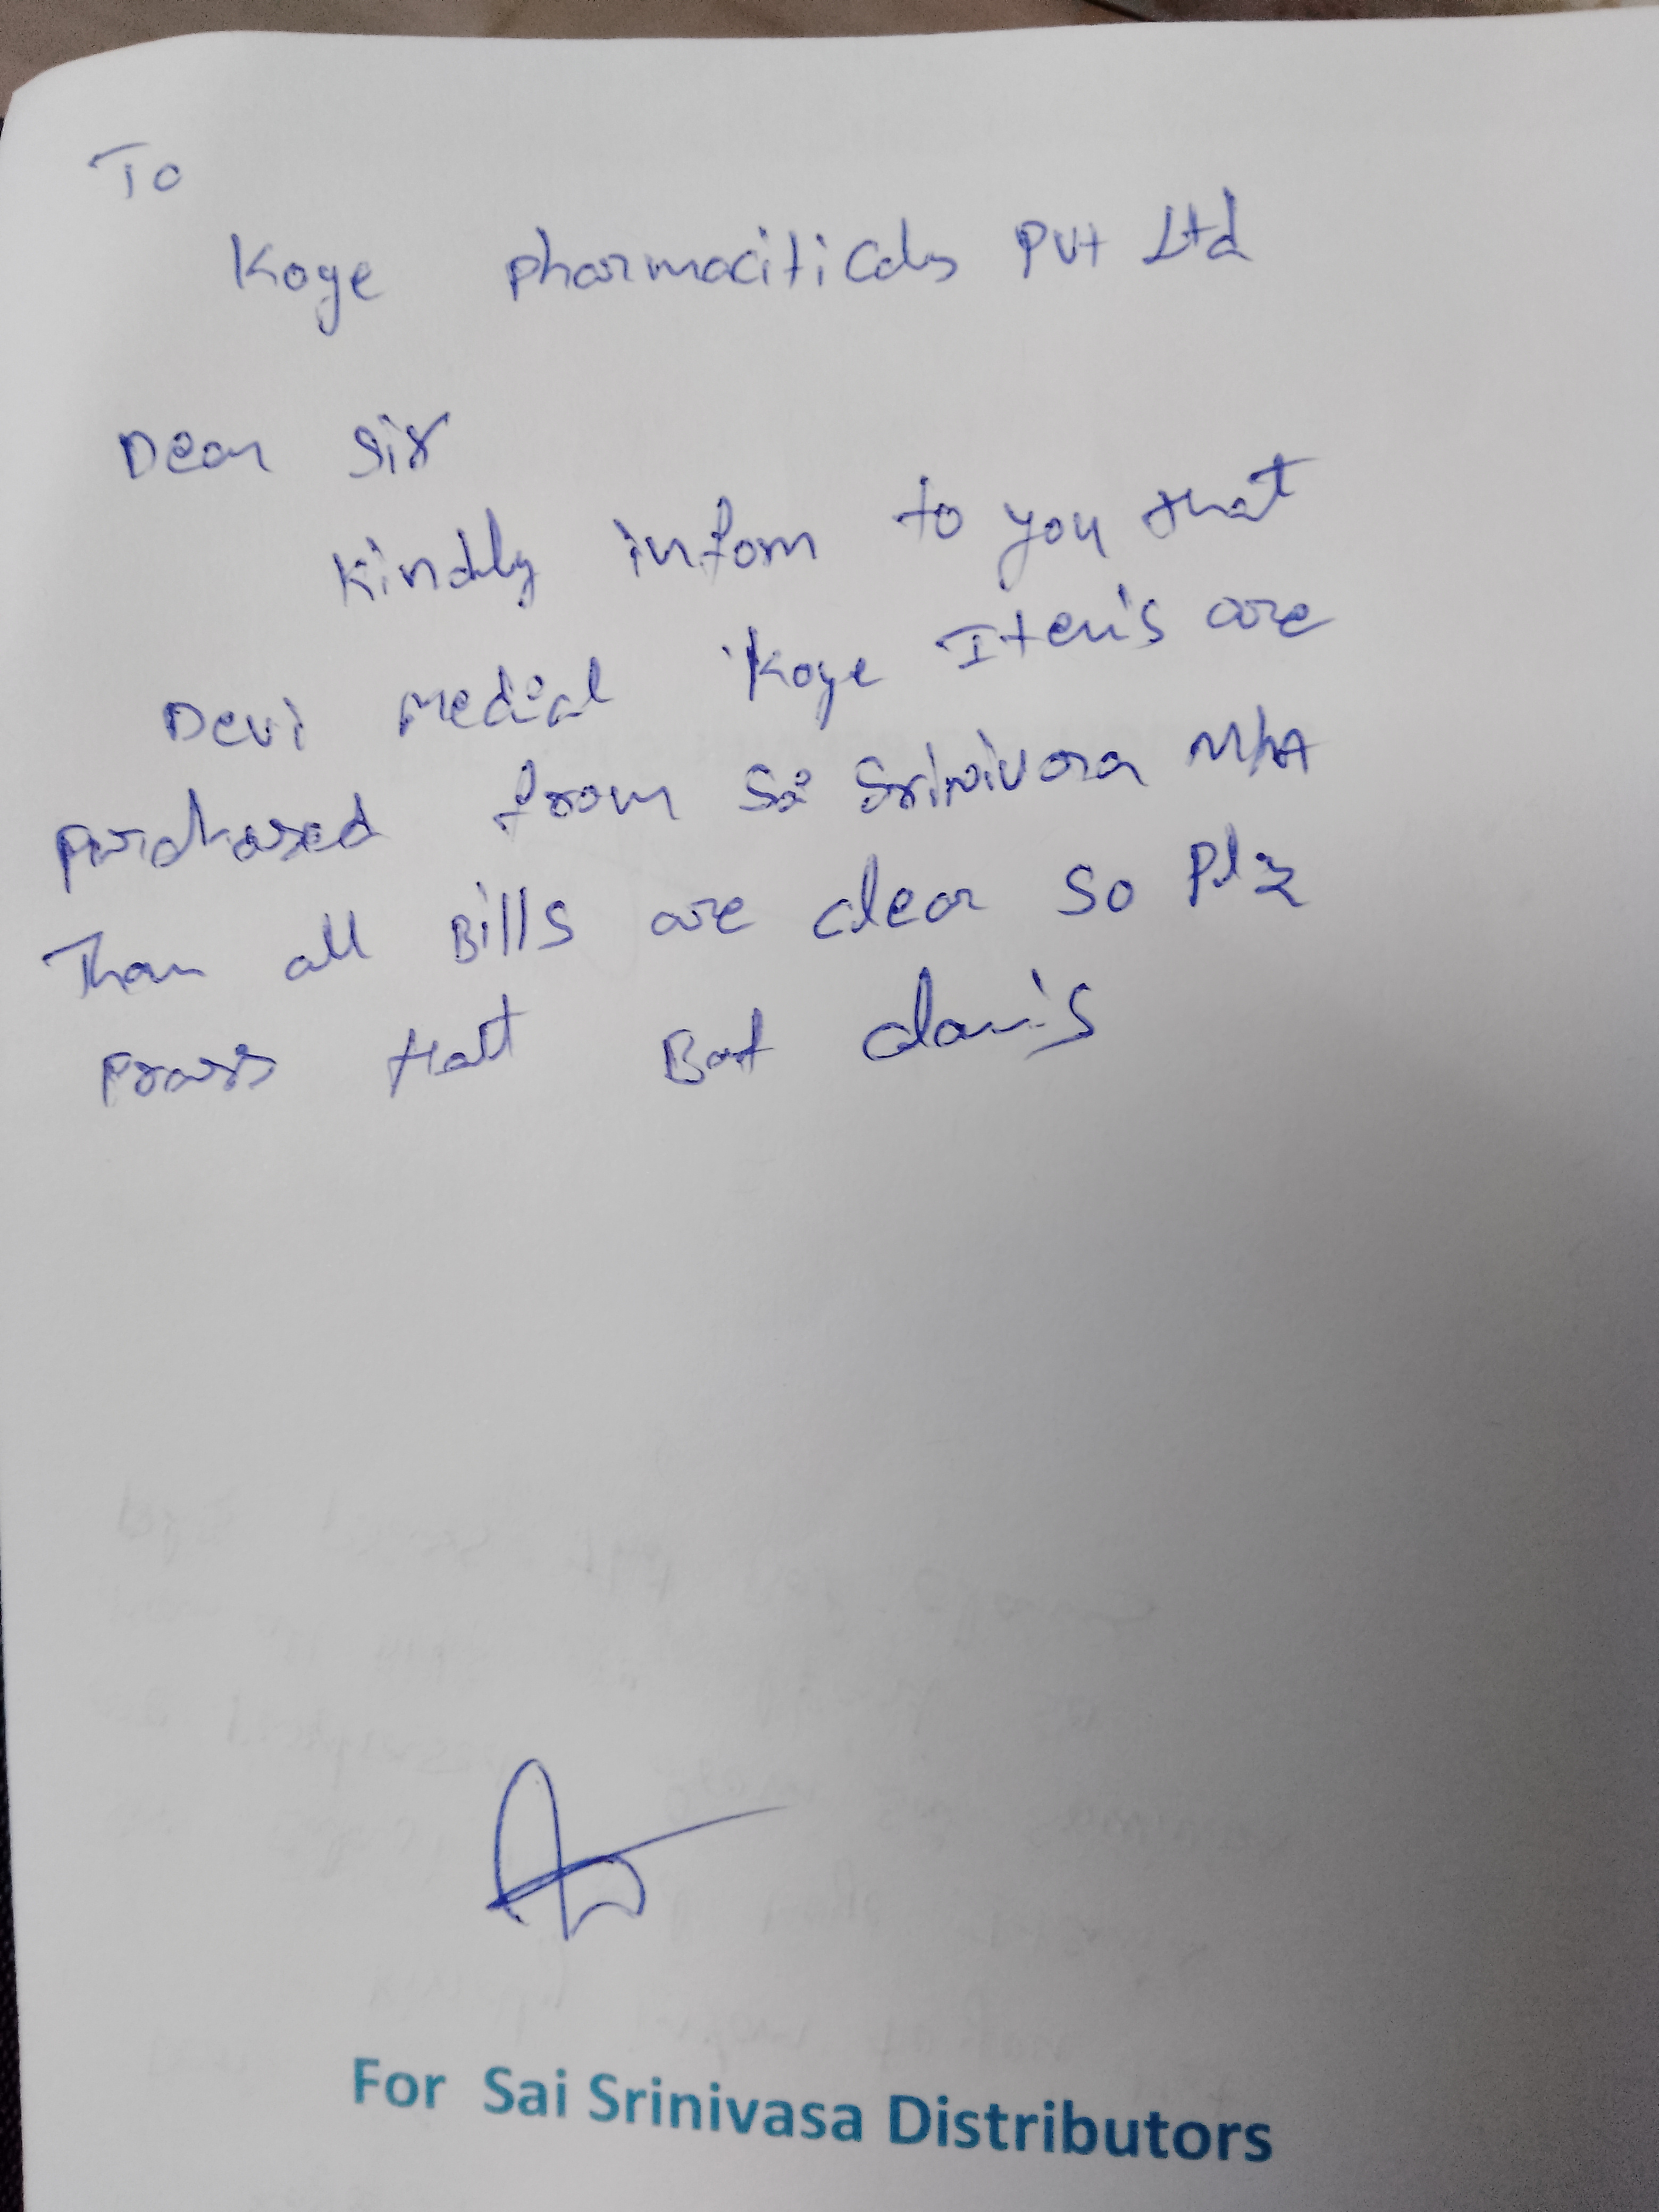 To
Koye pharmaciticals Pvt Ltd
Dear Sir
Kindly inform to you that
Devi Medical Koye Item's are
purchased from Sai Srinivasa
Than all Bills are clear So Plz
that claim's
For Sai Srinivasa Distributors